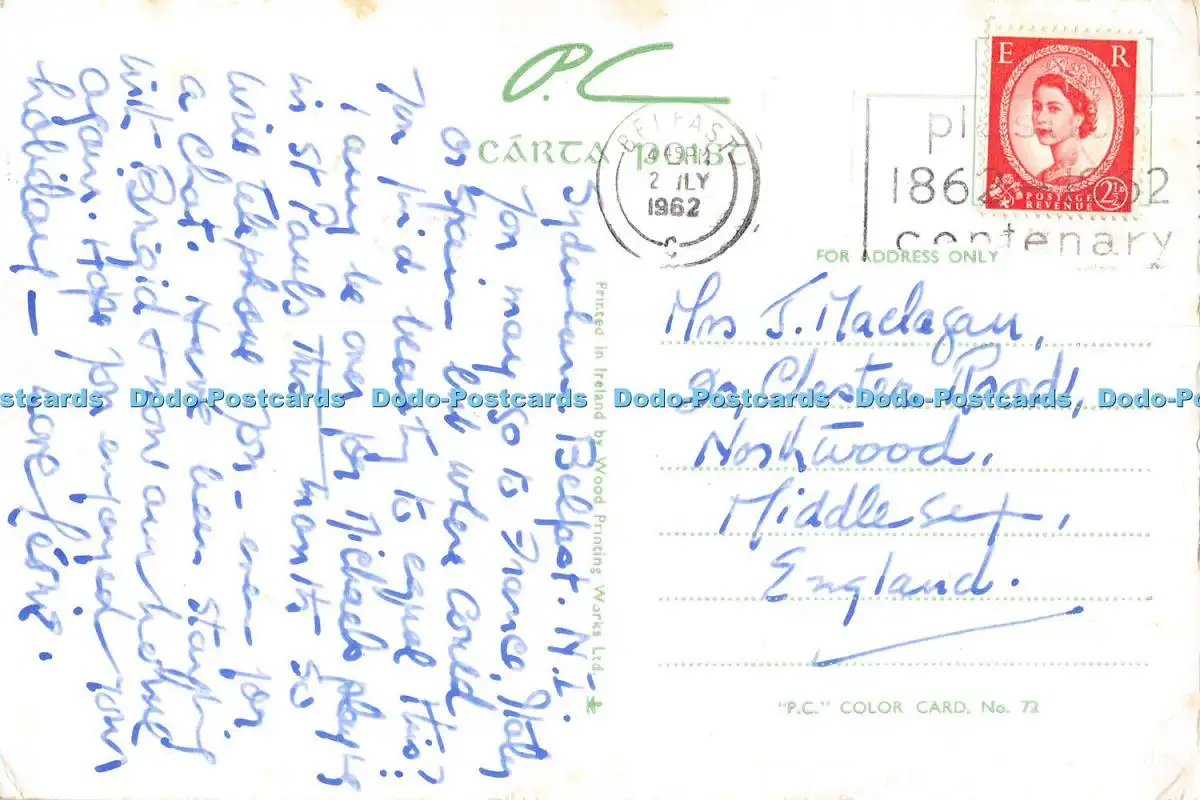 P.C
CÁRTA POIST
BELFAST
4 45 PM
2 JLY
1962
plastics
1862 - 1962
centenary
E R
POSTAGE
REVENUE
2½D
FOR ADDRESS ONLY
Mrs J. Maclagan,
Chester Road,
Northwood,
Middlesex,
England.
"P.C." COLOR CARD, No. 72
Printed in Ireland by Wood Printing Works Ltd.
Sydenham Belfast. N.I.
You may go to France, Italy
or Spain but where could
you find beauty to equal this?
I may be over for Michael's play
in St Pauls this month so
will telephone you - even for
a Chat. Have been staying
with Brigid & now am behind
again. Hope you enjoyed your
holiday - Love
Dodo-Postcards Dodo-Postcards Dodo-Postcards Dodo-Postcards Dodo-Postcards